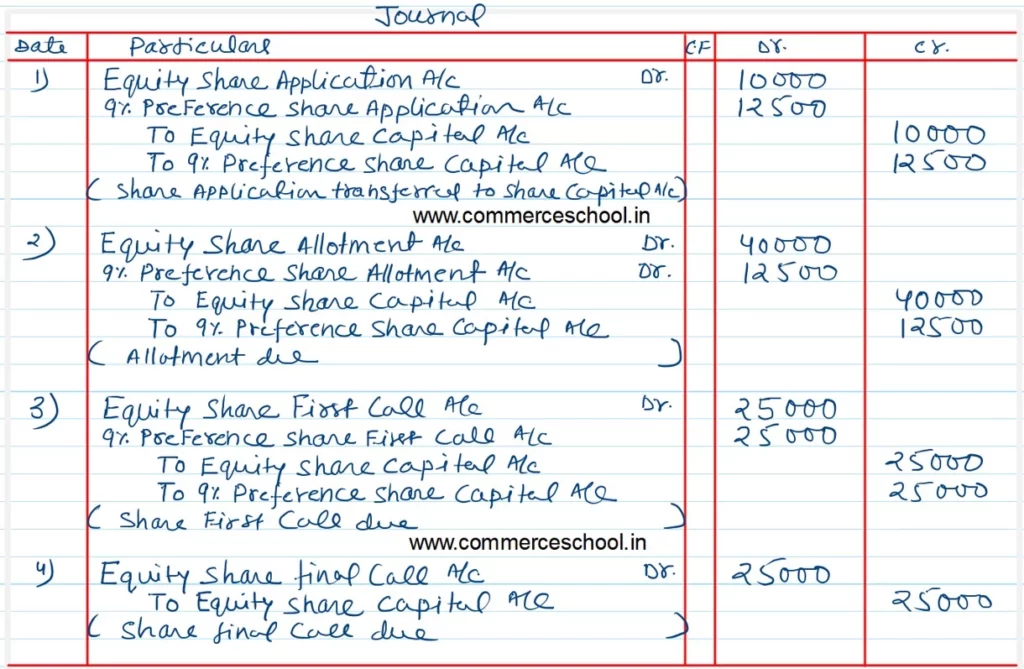 Journal
Date Particulars CF Dr. Cr.
1) Equity Share Application A/c Dr. 10000
9% Preference Share Application A/c 12500
To Equity Share Capital A/c 10000
To 9% Preference Share Capital A/c 12500
( Share Application transferred to Share Capital A/c)
www.commerceschool.in
2) Equity Share Allotment A/c Dr. 40000
9% Preference Share Allotment A/c Dr. 12500
To Equity Share Capital A/c 40000
To 9% Preference Share Capital A/c 12500
( Allotment due )
3) Equity Share First Call A/c Dr. 25000
9% Preference Share First Call A/c 25000
To Equity Share Capital A/c 25000
To 9% Preference Share Capital A/c 25000
( Share First Call due )
www.commerceschool.in
4) Equity Share final Call A/c Dr. 25000
To Equity Share Capital A/c 25000
( Share final Call due )